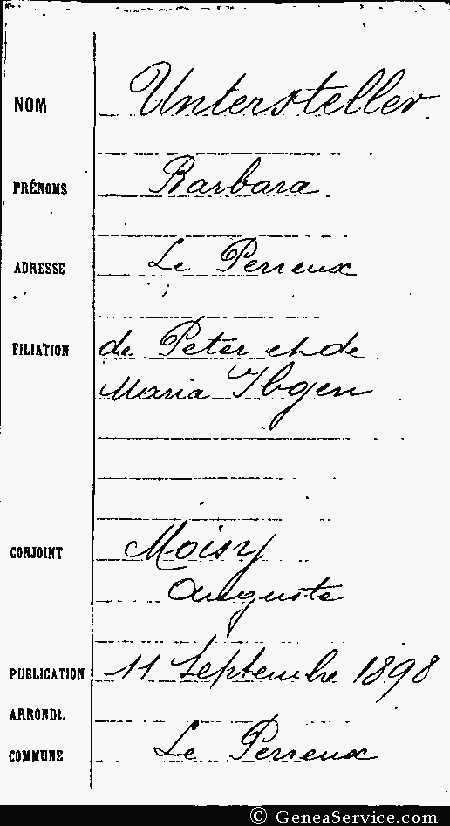 NOM Untersteller
PRÉNOMS Barbara
ADRESSE Le Perreux
FILIATION de Peter et de
Maria Ibgen
CONJOINT Moisy
Auguste
PUBLICATION 11 Septembre 1898
ARRONDt.
COMMUNE Le Perreux
© GeneaService.com